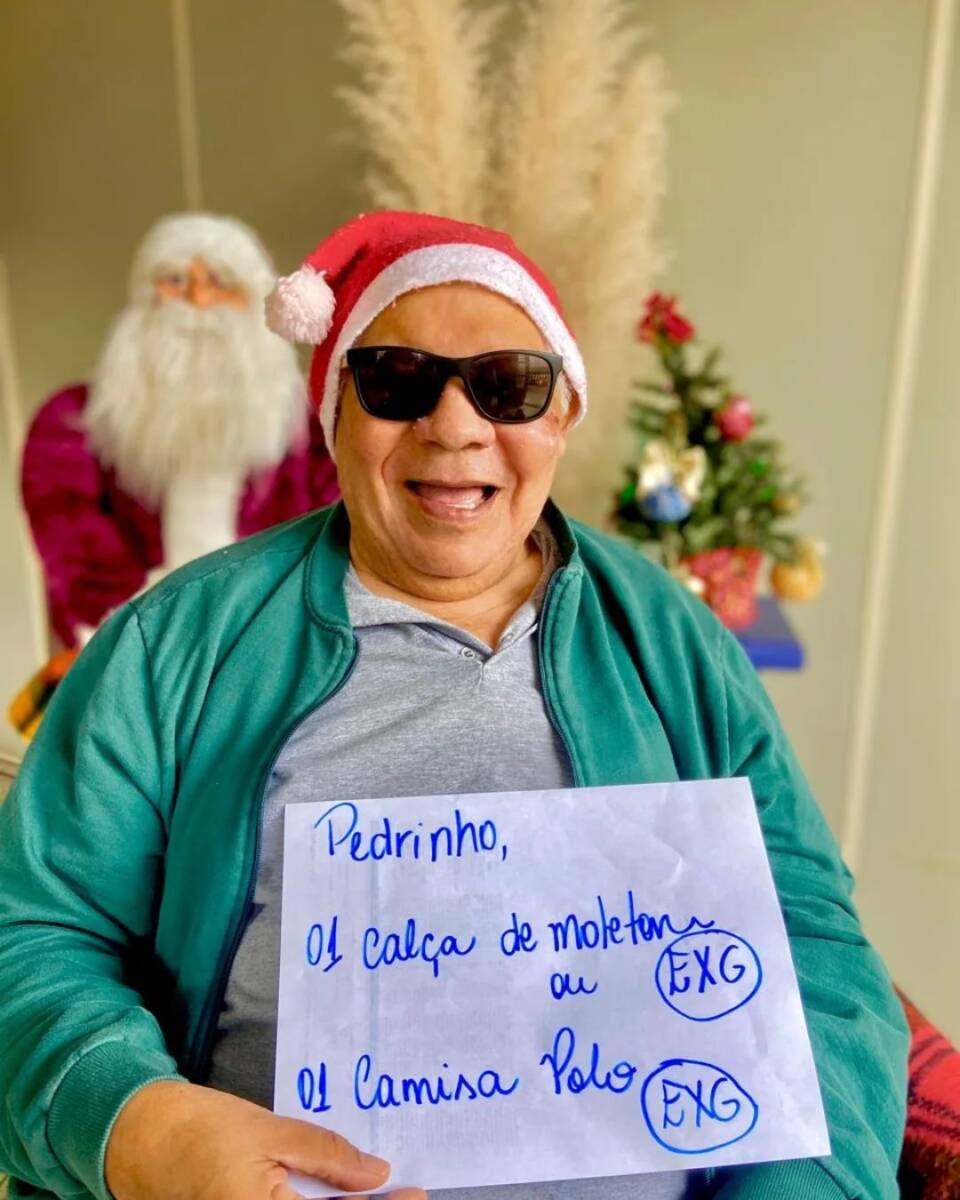 Pedrinho,
01 calça de moletom
ou EXG
01 Camisa Polo
EXG